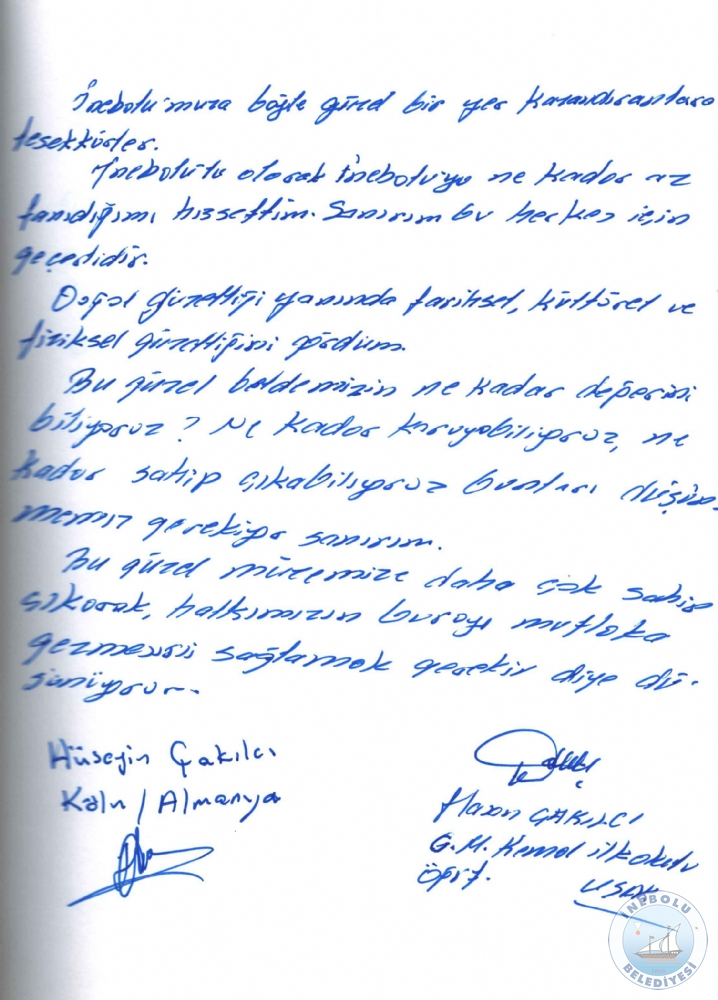 İnebolu'muza böyle güzel bir yer kazandıranlara
teşekkürler.
İnebolulu olarak İnebolu'yu ne kadar az
tanıdığımı hissettim. Sanırım bu herkes için
geçerlidir.
Doğal güzelliği yanında tarihsel, kültürel ve
fiziksel güzelliğini gördüm.
Bu güzel beldemizin ne kadar değerini
biliyoruz? Ne kadar koruyabiliyoruz, ne
kadar sahip çıkabiliyoruz bunları düşün-
memiz gerekiyor sanırım.
Bu güzel müzemize daha çok sahip
çıkarak, halkımızın burayı mutlaka
gezmesini sağlamak gerekir diye dü-
şünüyorum.
Hüseyin Çakılcı
Köln / Almanya
Hasan ÇAKILCI
G.M. Kemal ilkokulu
Öğrt. UŞAK
İNEBOLU
BELEDİYESİ